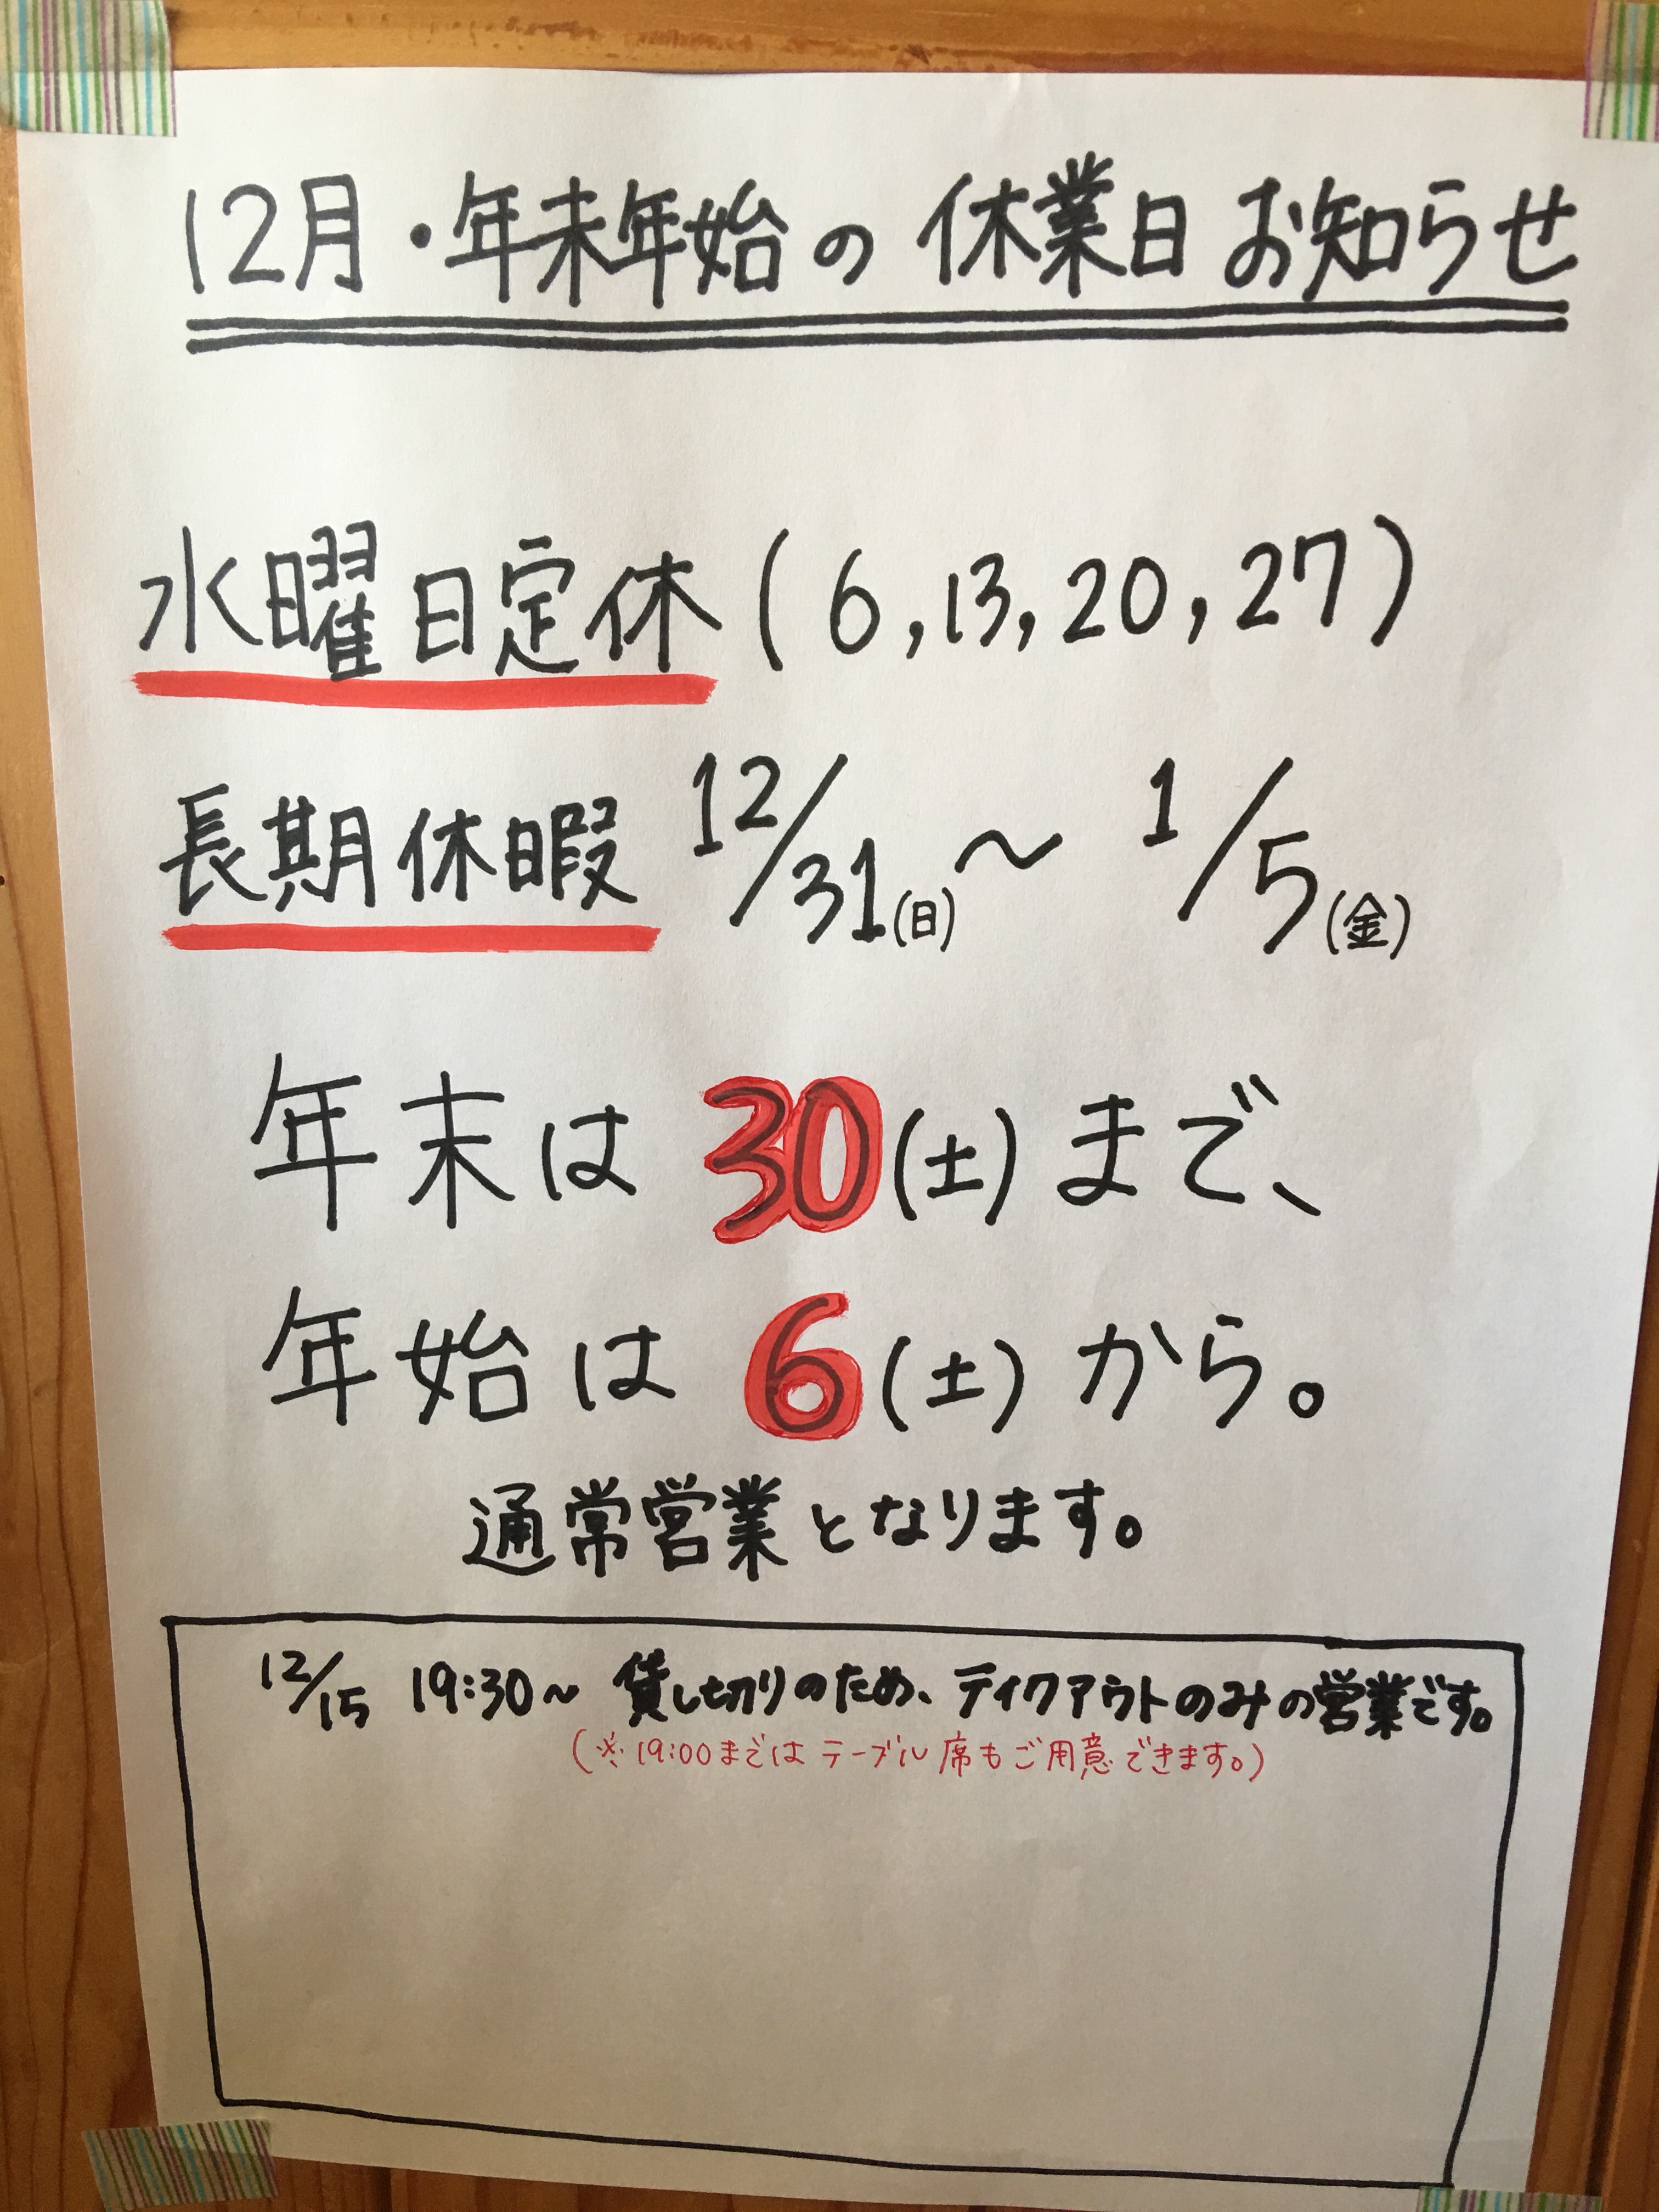 12月・年末年始の 休業日 お知らせ
水曜日定休 (6,13,20,27)
長期休暇 12/31(日)～ 1/5(金)
年末は 30(土)まで、
年始は 6(土)から。
通常営業となります。
12/15 19:30～ 貸し切りのため、テイクアウトのみの営業です。
(※19:00まではテーブル席もご用意できます。)